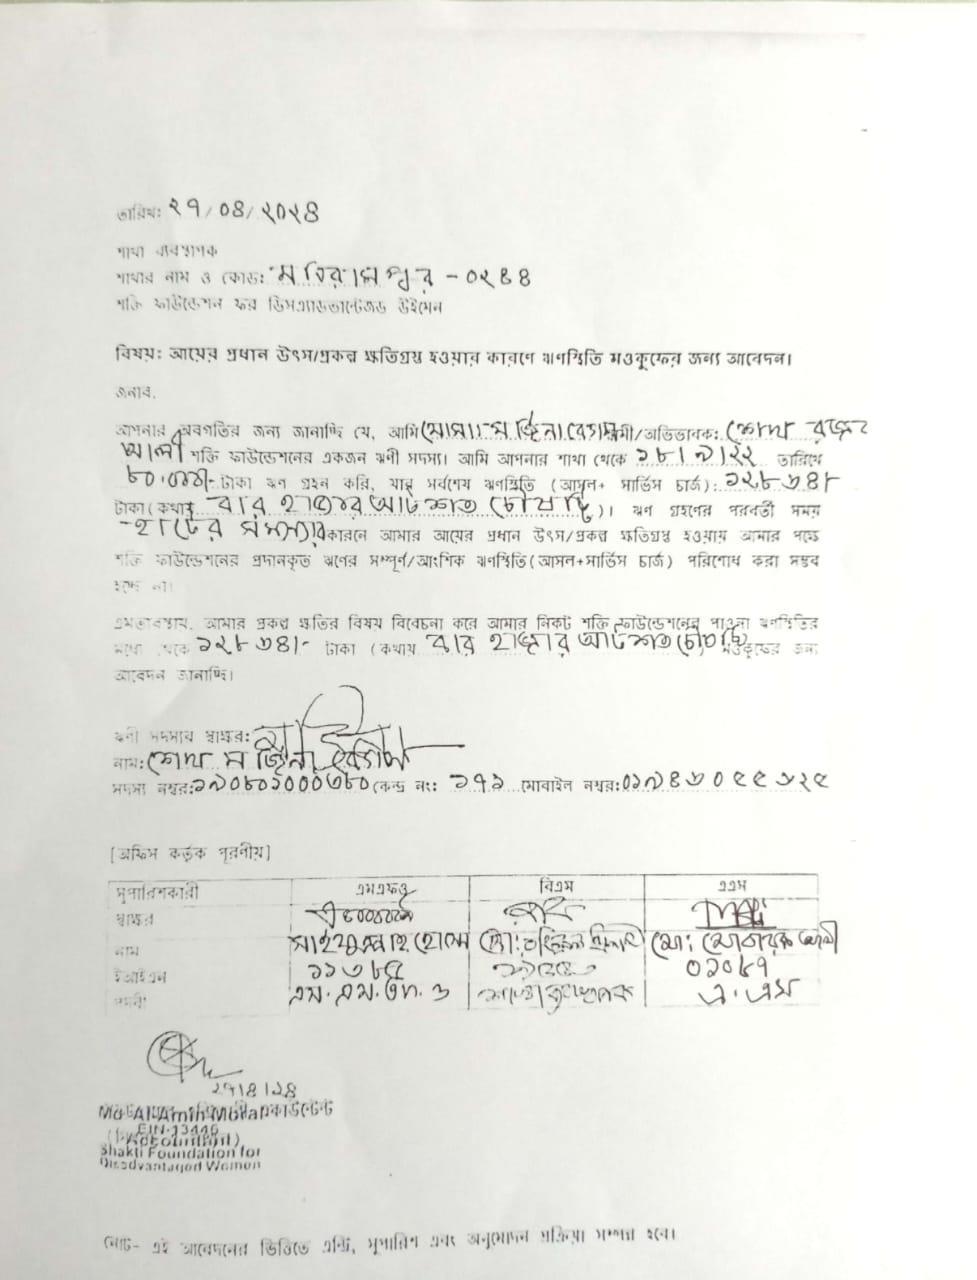 তারিখ: ২৭/০৪/২০২৪
শাখা ব্যবস্থাপক
শাখার নাম ও কোড: মনিরামপুর - ০২৪৪
শক্তি ফাউন্ডেশন ফর ডিসএ্যাডভান্টেজড উইমেন
বিষয়: আয়ের প্রধান উৎস/প্রকল্প ক্ষতিগ্রস্ত হওয়ার কারণে ঋণস্থিতি মওকুফের জন্য আবেদন।
জনাব,
আপনার অবগতির জন্য জানাচ্ছি যে, আমি মোসাঃ মর্জিনা বেগম স্বামী/অভিভাবক: শেখ রজব
আলী শক্তি ফাউন্ডেশনের একজন ঋণী সদস্য। আমি আপনার শাখা থেকে তারিখে
৮০,০০০/- টাকা ঋণ গ্রহন করি, যার সর্বশেষ ঋণস্থিতি (আসল+ সার্ভিস চার্জ): ১২৮৬৪/-
টাকা (কথায় বার হাজার আটশত চৌষট্টি)। ঋণ গ্রহণের পরবর্তী সময়
হার্টের সমস্যার কারনে আমার আয়ের প্রধান উৎস/প্রকল্প ক্ষতিগ্রস্ত হওয়ায় আমার পক্ষে
শক্তি ফাউন্ডেশনের প্রদানকৃত ঋণের সম্পূর্ণ/আংশিক ঋণস্থিতি (আসল+সার্ভিস চার্জ) পরিশোধ করা সম্ভব
হচ্ছে না।
এমতাবস্থায়, আমার প্রকল্প ক্ষতির বিষয় বিবেচনা করে আমার নিকট শক্তি ফাউন্ডেশনের পাওনা ঋণস্থিতির
মধ্য থেকে ১২৮৬৪/- টাকা (কথায় বার হাজার আটশত মওকুফের জন্য
আবেদন জানাচ্ছি।
ঋণী সদস্যের স্বাক্ষর:
নাম: মর্জিনা বেগম
সদস্য নম্বর: ১৯০৮০১০০০৩৮০ কেন্দ্র নং: ১৭১ মোবাইল নম্বর: ০১৯৪৬০৫৫৬২৫
[অফিস কর্তৃক পূরণীয়]
সুপারিশকারী এমএফও বিএম এএম
স্বাক্ষর
নাম মো: মোবারক আলী
ইআইএন ১১৩৮৫ ০১০৮৭
পদবী এম.এম.এফ.ও এ.এম
২৭/৪/২৪
Md Al Amin Molla
EIN-13446
(Accountant)
Shakti Foundation for
Disadvantaged Women
নোট- এই আবেদনের ভিত্তিতে এন্ট্রি, সুপারিশ এবং অনুমোদন প্রক্রিয়া সম্পন্ন হবে।